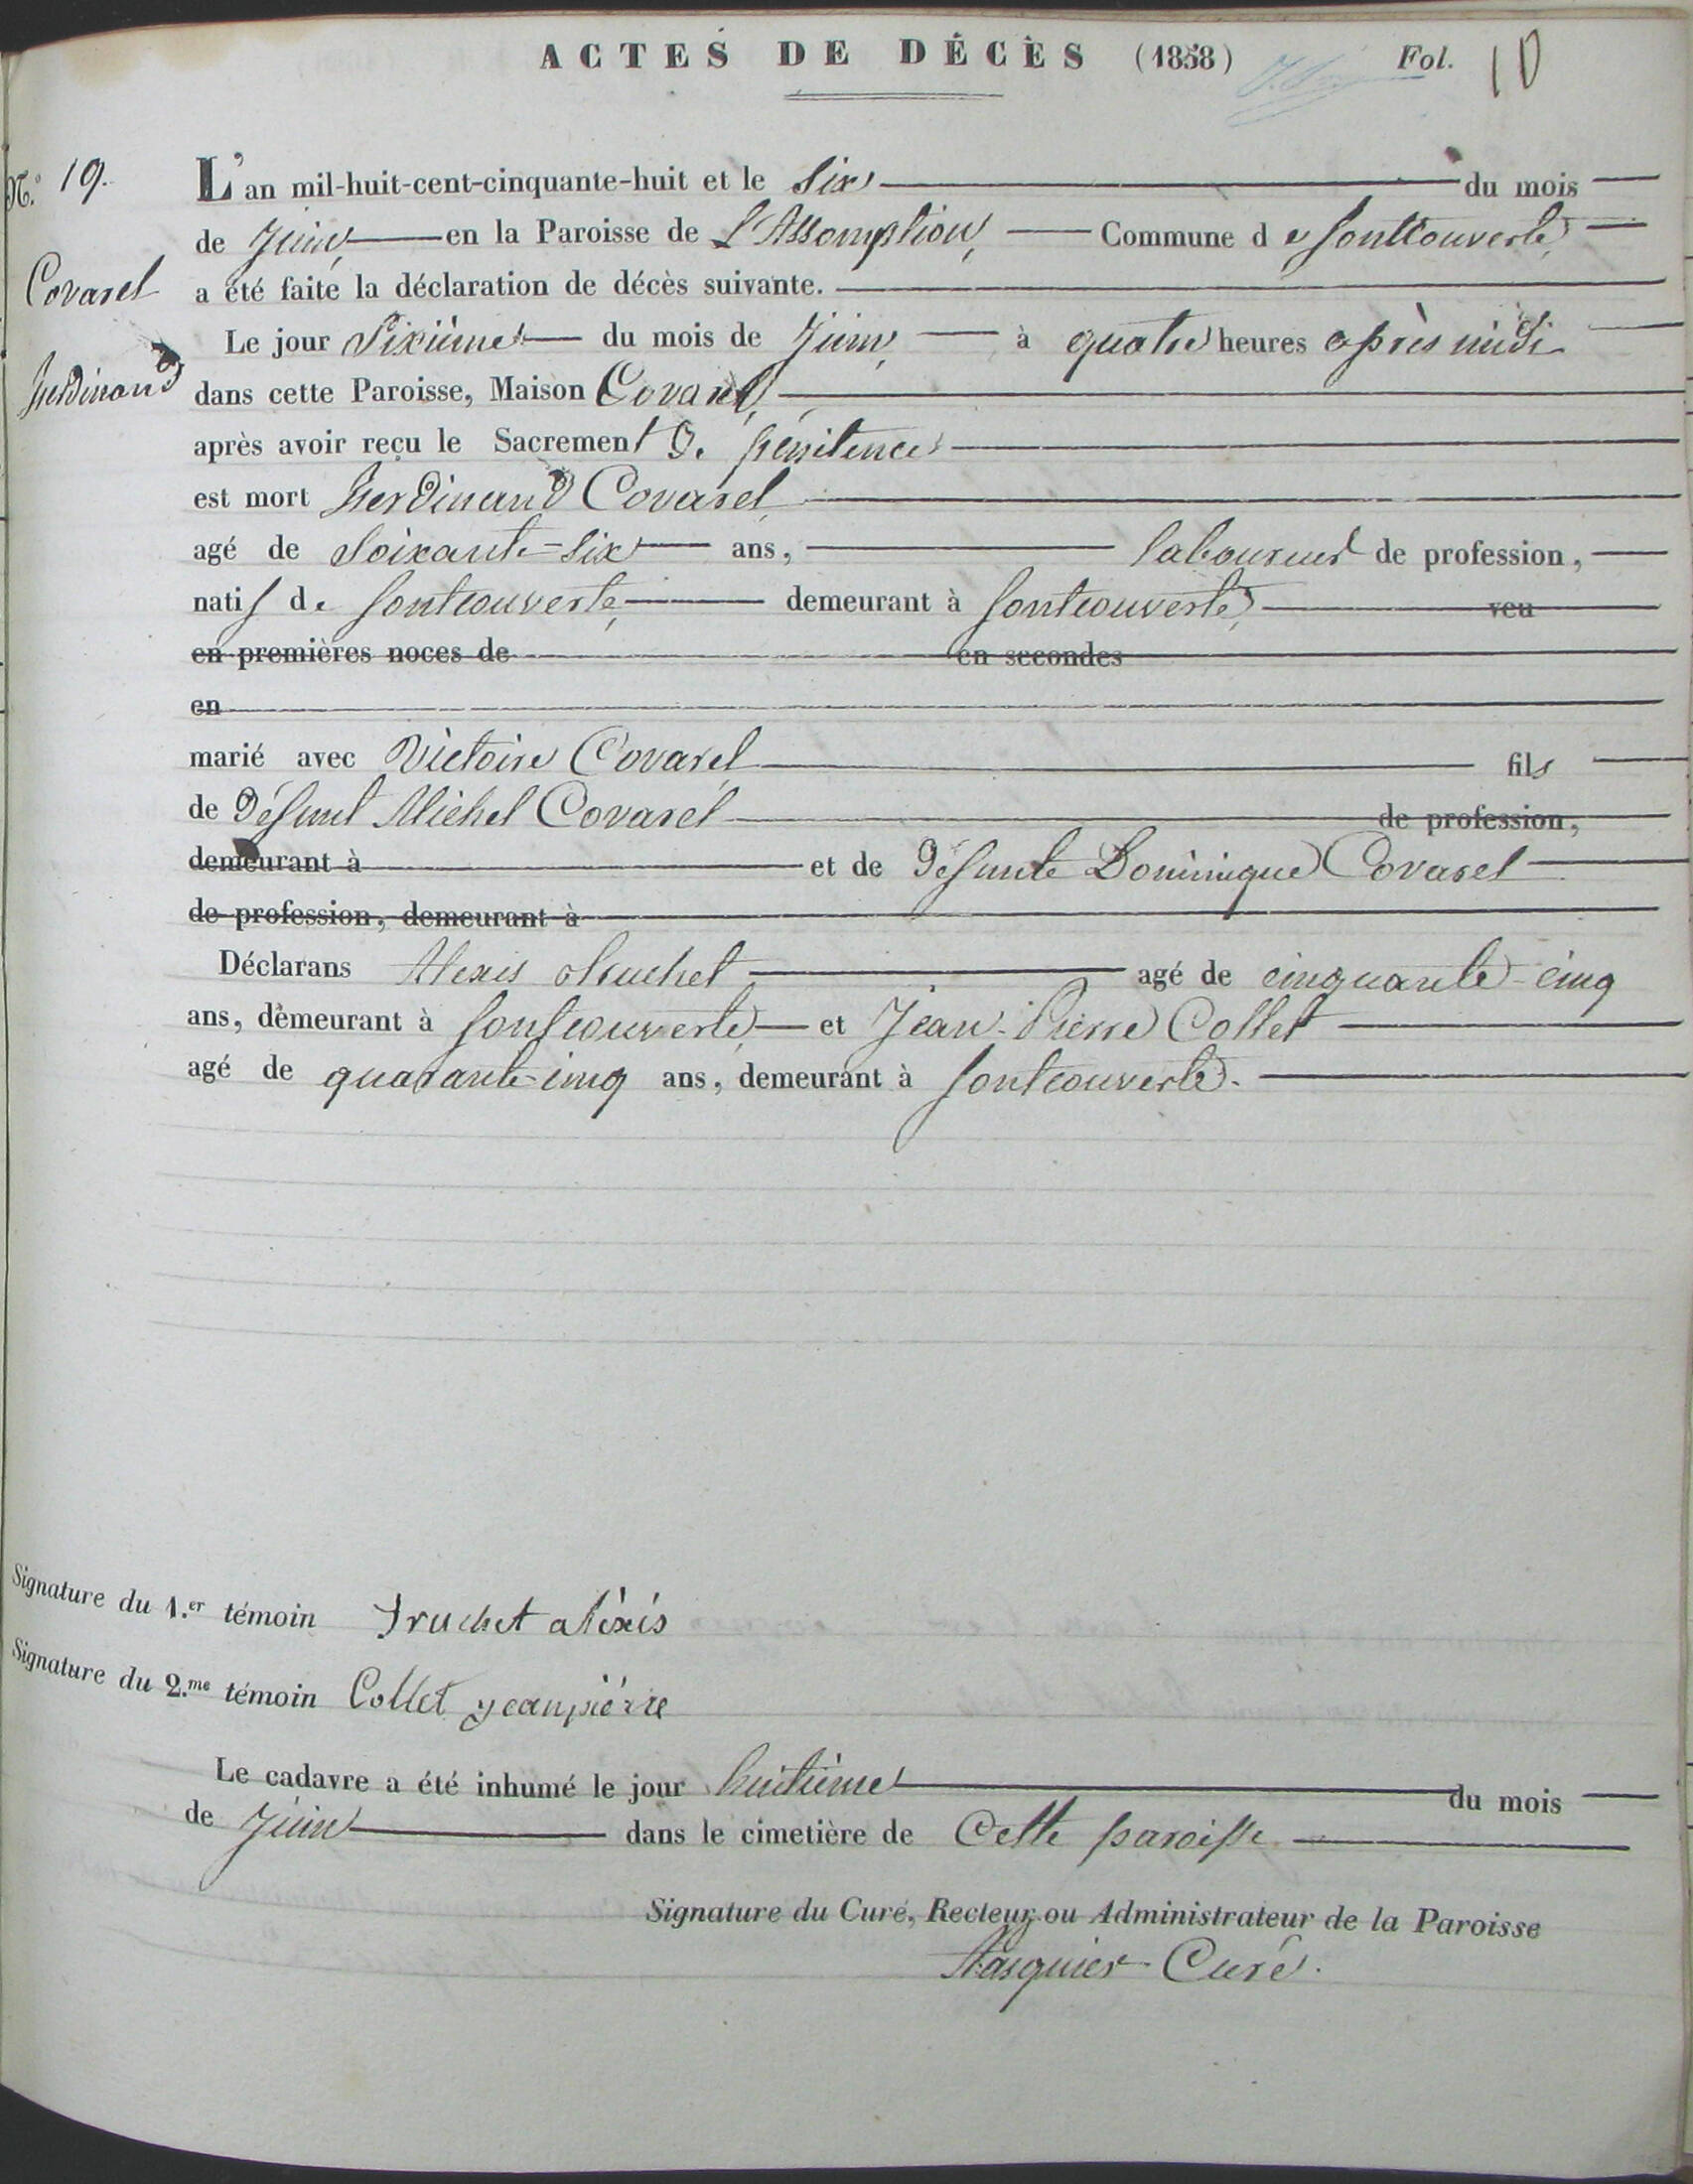 ACTES DE DÉCÈS (1858) Fol. 10
N.° 19. L'an mil-huit-cent-cinquante-huit et le six du mois
de Juin, en la Paroisse de L'Assomption, Commune de fontcouverte,
Covarel a été faite la déclaration de décès suivante.
Le jour Sixième du mois de Juin, à quatre heures après midi
ferdinand dans cette Paroisse, Maison Covarel,
après avoir reçu le Sacrement de pénitence
est mort ferdinand Covarel
agé de Soixante-six ans, laboureur de profession,
natif de fontcouverte, demeurant à fontcouverte, veu
en premières noces de en secondes
en
marié avec Victoire Covarel fils
de défunt Michel Covarel de profession,
demeurant à et de défunte Dominique Covarel
de profession, demeurant à
Déclarans Alexis Truchet agé de cinquante-cinq
ans, demeurant à fontcouverte, et Jean-Pierre Collet
agé de quarante-cinq ans, demeurant à fontcouverte.
Signature du 1.er témoin Truchet aléxis
Signature du 2.me témoin Collet jeanpiérre
Le cadavre a été inhumé le jour huitième du mois
de Juin dans le cimetière de Cette paroisse
Signature du Curé, Recteur ou Administrateur de la Paroisse
Curé.